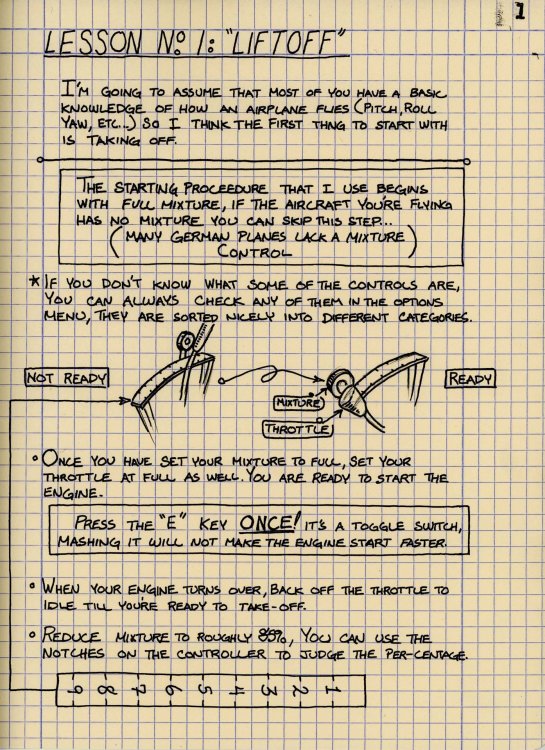 1
LESSON NO. 1: "LIFTOFF"
I'M GOING TO ASSUME THAT MOST OF YOU HAVE A BASIC
KNOWLEDGE OF HOW AN AIRPLANE FLIES (PITCH, ROLL
YAW, ETC...) SO I THINK THE FIRST THNG TO START WITH
IS TAKING OFF.
THE STARTING PROCEEDURE THAT I USE BEGINS
WITH FULL MIXTURE, IF THE AIRCRAFT YOU'RE FLYING
HAS NO MIXTURE YOU CAN SKIP THIS STEP...
(MANY GERMAN PLANES LACK A MIXTURE
CONTROL)
* IF YOU DON'T KNOW WHAT SOME OF THE CONTROLS ARE,
YOU CAN ALWAYS CHECK ANY OF THEM IN THE OPTIONS
MENU, THEY ARE SORTED NICELY INTO DIFFERENT CATEGORIES.
NOT READY
READY
MIXTURE
THROTTLE
• ONCE YOU HAVE SET YOUR MIXTURE TO FULL, SET YOUR
THROTTLE AT FULL AS WELL. YOU ARE READY TO START THE
ENGINE.
PRESS THE "E" KEY ONCE! IT'S A TOGGLE SWITCH,
MASHING IT WILL NOT MAKE THE ENGINE START FASTER.
• WHEN YOUR ENGINE TURNS OVER, BACK OFF THE THROTTLE TO
IDLE TILL YOU'RE READY TO TAKE-OFF.
• REDUCE MIXTURE TO ROUGHLY 85%, YOU CAN USE THE
NOTCHES ON THE CONTROLLER TO JUDGE THE PER-CENTAGE.
9 8 7 6 5 4 3 2 1